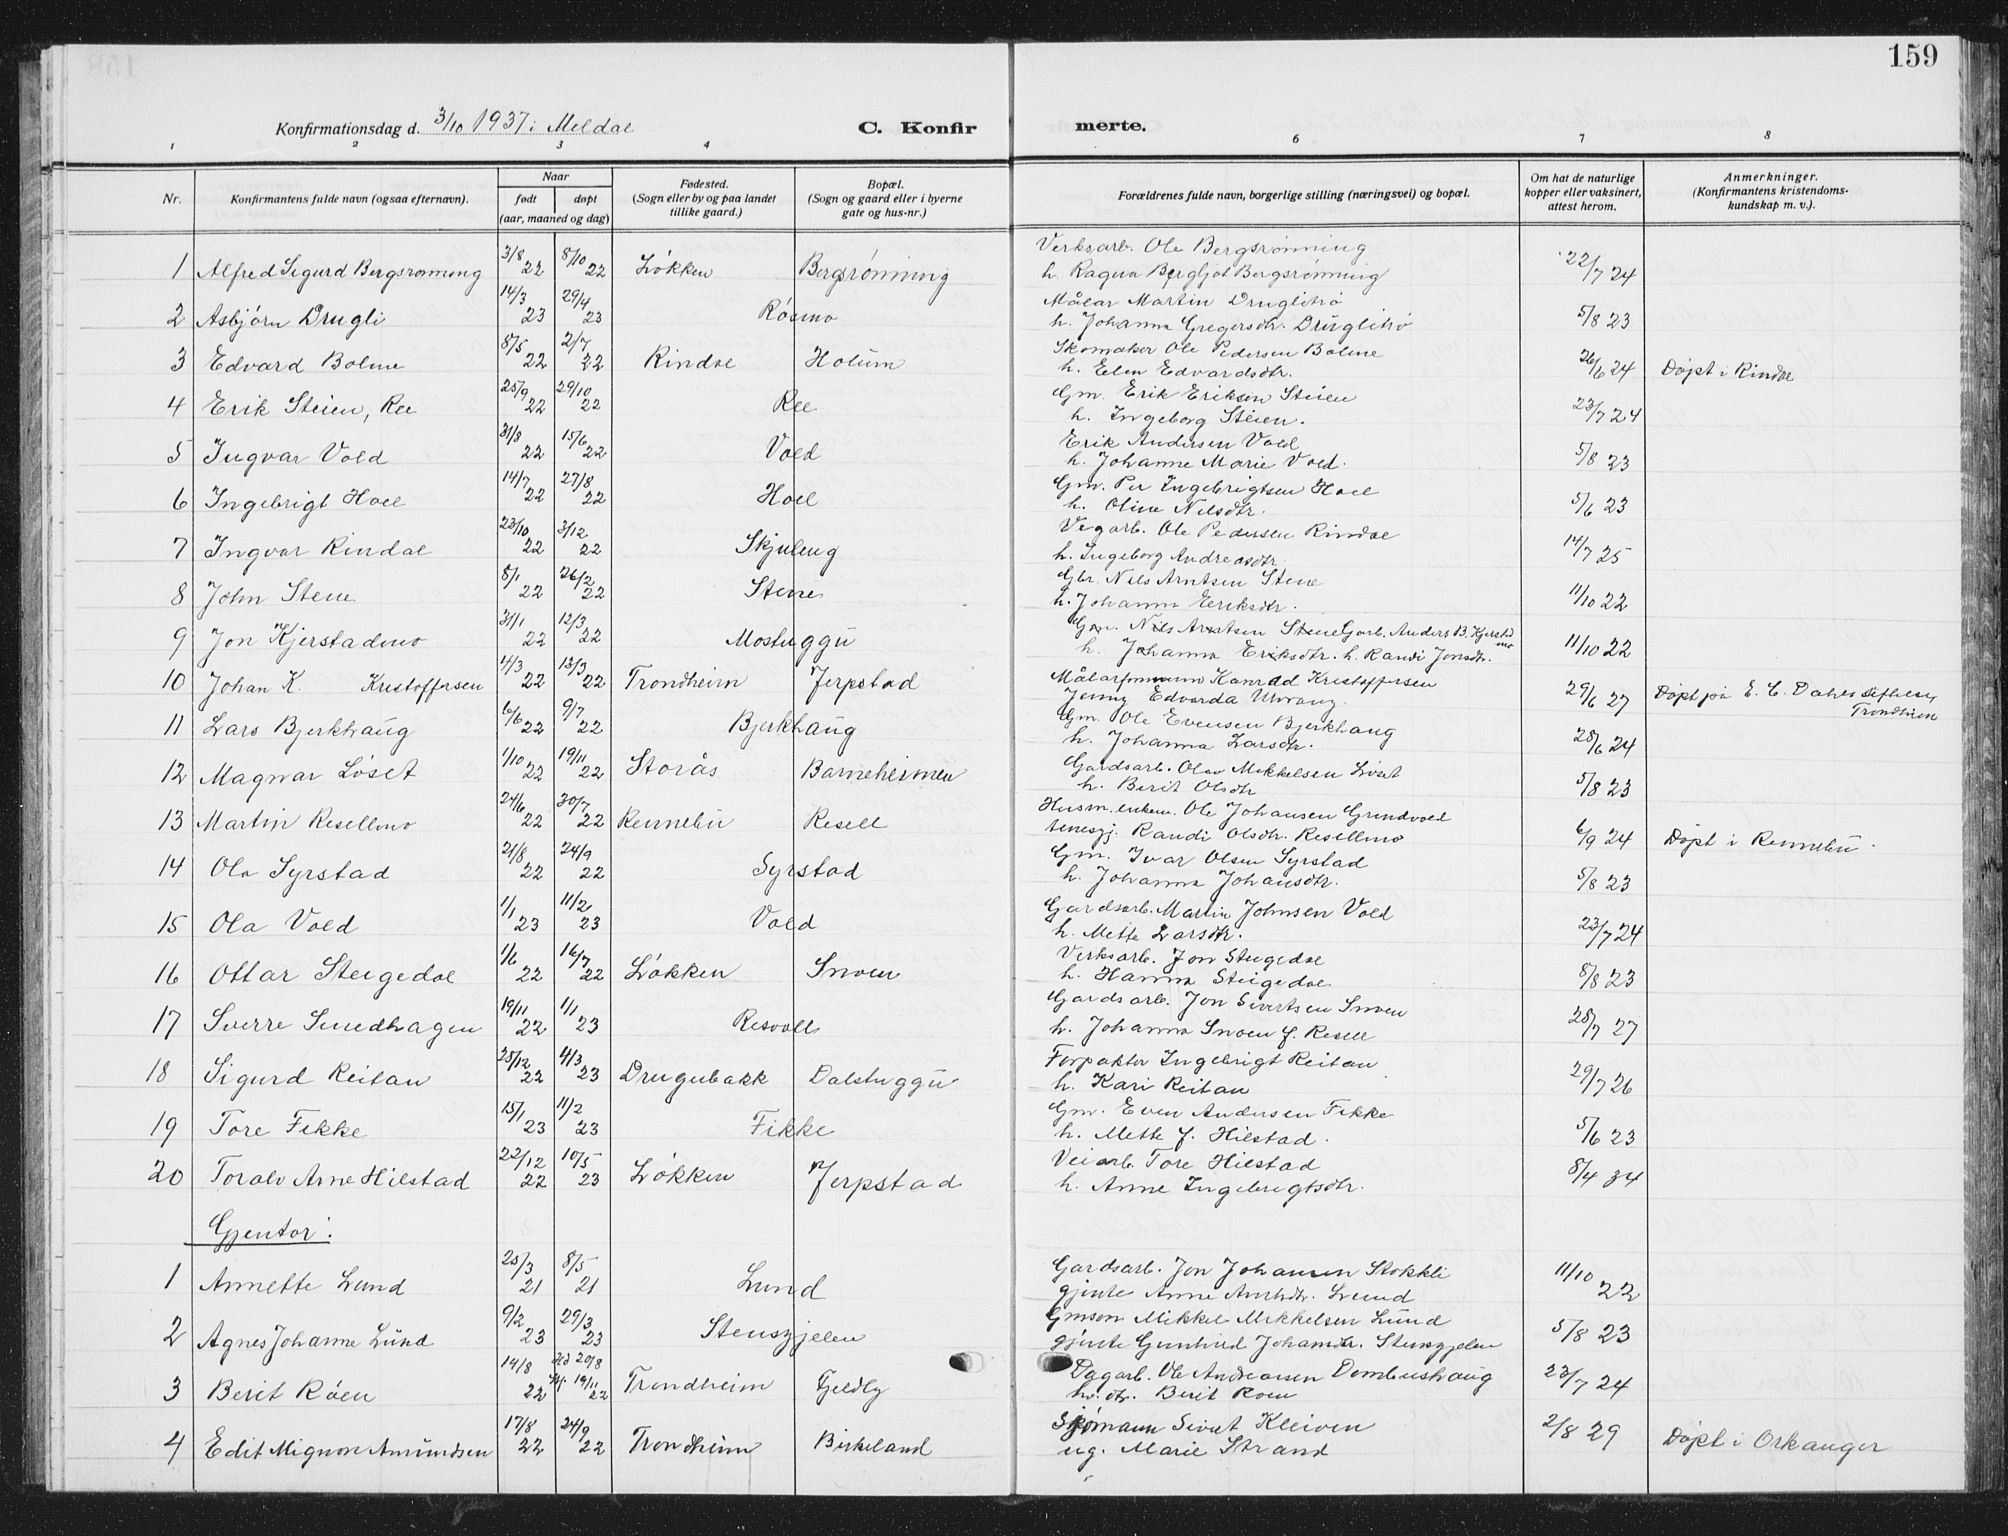 159
Konfirmationsdag d. 3/10 1937 i Meldal C. Konfirmerte.
1 2 3 4 6 7 8
Nr. Konfirmantens fulde navn (ogsaa efternavn). Naar født døpt (aar, maaned og dag) Fødested. (Sogn eller by og paa landet tillike gaard.) Bopæl. (Sogn og gaard eller i byerne gate og hus-nr.) Forældrenes fulde navn, borgerlige stilling (næringsvei) og bopæl. Om hat de naturlige kopper eller vaksinert, attest herom. Anmerkninger. (Konfirmantens kristendoms-kundskap m. v.).
1 Alfred Sigurd Bergsrønning 3/8 22 8/10 22 Løkken Bergsrönning Verksarb. Ole Bergsrönning
h. Ragna Bergljot Bergsrönning 22/7 24
2 Asbjörn Drugli 14/3 23 29/4 23 Rösmo Målar Martin Druglitrö
h. Johanna Gregersdtr. Druglitrö 5/8 23
3 Edvard Bolme 8/5 22 2/7 22 Rindal Holum Skomaker Ole Pedersen Bolme
h. Elen Edvardsdtr. 26/6 24 Döpt i Rindal
4 Erik Steien, Ree 25/9 22 29/10 22 Ree Gm. Erik Eriksen Steien
h. Ingeborg Steien. 23/7 24
5 Ingvar Vold 31/3 22 15/6 22 Vold Erik Andersen Vold
h. Johanne Marie Vold. 5/8 23
6 Ingebrigt Hoel 14/7 22 27/8 22 Hoel Gm. Per Ingebrigtsen Hoel
h. Oline Nilsdtr. 5/6 23
7 Ingvar Rindal 23/10 22 3/12 22 Skjuleng Vegarb. Ole Pedersen Rindal
h. Ingeborg Andreasdtr. 14/7 25
8 John Stene 8/1 22 26/2 22 Stene Gbr. Nils Arntsen Stene
h. Johanna Eriksdtr. 11/10 22
9 Jon Kjerstadmo 31/1 22 12/3 22 Mostuggu Gm. Nils Arntsen Stene Garb. Anders B. Kjerstadmo
h. Johanna Eriksdtr. h. Randi Jonsdtr. 11/10 22
10 Johan K. Kristoffersen 4/3 22 13/3 22 Trondheim Jerpstad Målarformann Konrad Kristoffersen
Jenny Edvarda 29/6 27 Döpt på E. C. Dahls stiftelse, Trondheim
11 Lars Bjerkhaug 6/6 22 9/7 22 Bjerkhaug Gm. Ole Evensen Bjerkhaug
h. Johanna Larsdtr. 28/6 24
12 Magnar Löset 1/10 22 19/11 22 Storås Barneheimen Gardsarb. Olav Mikkelsen Löset
h. Berit Olsdtr 5/8 23
13 Martin Resellmo 24/6 22 30/7 22 Rennebu Resell Husm. enkem. Ole Johansen Grindvold
tenesgj. Randi Olsdtr. Resellmo 6/9 24 Döpt i Rennebu.
14 Ola Syrstad 21/8 22 24/9 22 Syrstad Gm. Ivar Olsen Syrstad
h. Johanna Johansdtr. 5/8 23
15 Ola Vold 1/1 23 11/2 23 Vold Gardsarb. Martin Johnsen Vold
h. Mette Larsdtr. 23/7 24
16 Ottar Steigedal 1/6 22 16/7 22 Lökken Snoen Verksarb. Jon Steigedal
h. Hanna Steigedal 8/8 23
17 Sverre Smedhagen 19/11 22 1/1 23 Resvoll Gardsarb. Jon Sivertsen Snoen
h. Johanna Snoen f. Resell 28/7 27
18 Sigurd Reitan 25/12 22 4/3 23 Drugubakk Dalstuggu Forpakter Ingebrigt Reitan
h. Kari Reitan 29/7 26
19 Tore Fikke 15/1 23 11/2 23 Fikke Gm. Even Andersen Fikke
h. Mette f. Hilstad. 5/6 23
20 Toralv Arne Hilstad 22/12 22 10/5 23 Lökken Jerpstad Veiarb. Tore Hilstad
h. Anne Ingebrigtsdtr. 8/4 34
Gjentor:
1 Annette Lund 25/3 21 8/5 21 Lund Gardsarb. Jon Johansen Stokkli
gjente Anne Arntsdtr. Lund 11/10 22
2 Agnes Johanne Lund 9/2 23 29/3 23 Stensgjelen Gmson Mikkel Mikkelsen Lund
gjente Gunhild Johansdtr. Stensgjelen 5/8 23
3 Berit Röen 14/8 22 20/8 19/11 22 Trondheim Fjeldly Dagarb. Ole Andreasen Dombushaug
h. dtr. Berit Roen 23/7 24
4 Edit Mignon Amundsen 17/8 22 24/9 22 Trondheim Birkeland Sjømann Sivert Kleiven
ug. Marie Strand 2/8 29 Döpt i Orkanger